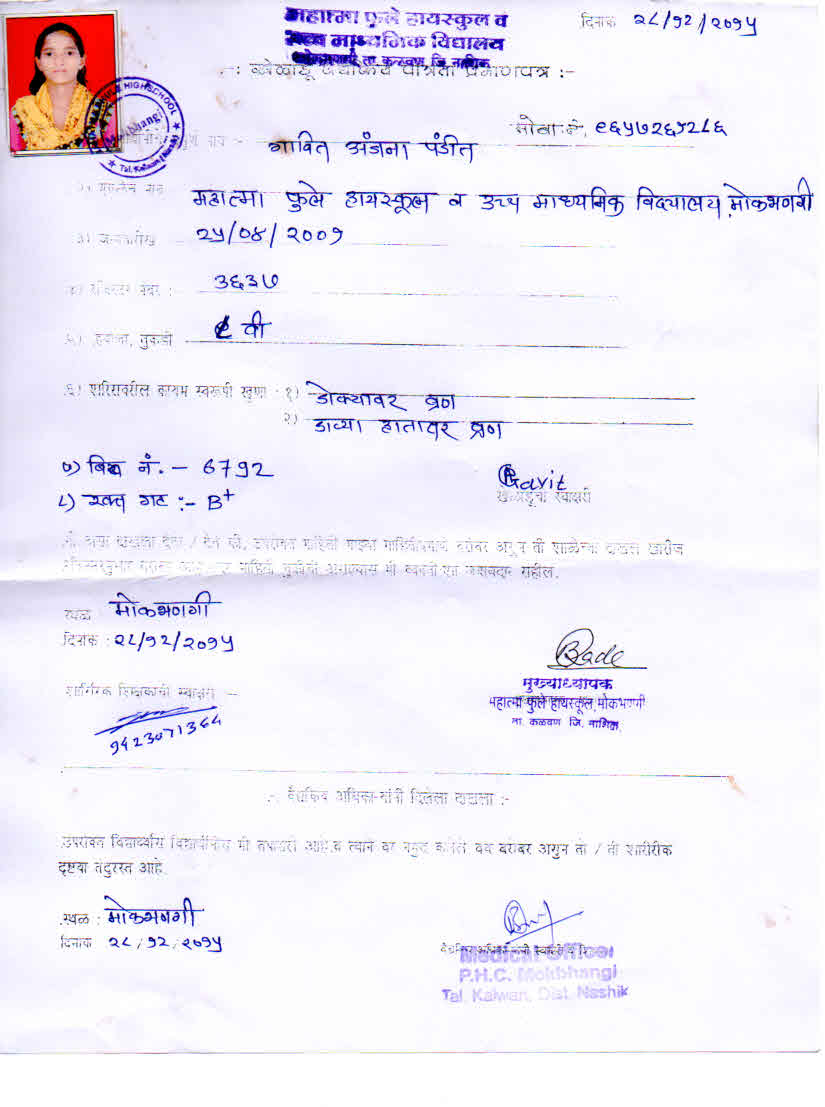 महात्मा फुले हायस्कुल व
उच्च माध्यमिक विद्यालय
ता. कळवण जि. नाशिक
दिनांक २८/१२/२०१५
-: खेळाडू वयोक्रिय पात्रता प्रमाणपत्र :-
HIGHSCHOOL
Mokbhangi
Tal. Kalwan
गावित अंजना पंडीत
महात्मा फुले हायस्कूल व उच्च माध्यमिक विद्यालय, मोकभणगी
३) जन्मतारीख २५/०४/२००१
४) रजिस्टर नंबर :- ३६३७
५) इयत्ता, तुकडी ८ वी
६) शरिरावरील कायम स्वरूपी खुणा - १) डोक्यावर व्रण
२) डाव्या हातावर व्रण
७) बिल्ला नं. - 6792
८) रक्त गट :- B+
Gavit
खेळाडूचा स्वाक्षरी
स्थळ मोकभणगी
दिनांक : २८/१२/२०१५
शारिरिक शिक्षकाची स्वाक्षरी :-
9423071364
Bade
मुख्याध्यापक
महात्मा फुले हायस्कूल, मोकभणगी
ता. कळवण जि. नाशिक
-: वैद्यकिय अधिका-यांनी दिलेला दाखला :-
उपरोक्त विद्यार्थ्यास विद्यार्थीनीस मी तपासले आहे व त्याने वर नमुद केलेले वय बरोबर असुन तो / ती शारीरीक
दृष्टया तंदुरस्त आहे.
स्थळ : मोकभणगी
दिनांक २८/१२/२०१५
Medical Officer
P.H.C. Mokbhangi
Tal. Kalwan, Dist. Nashik